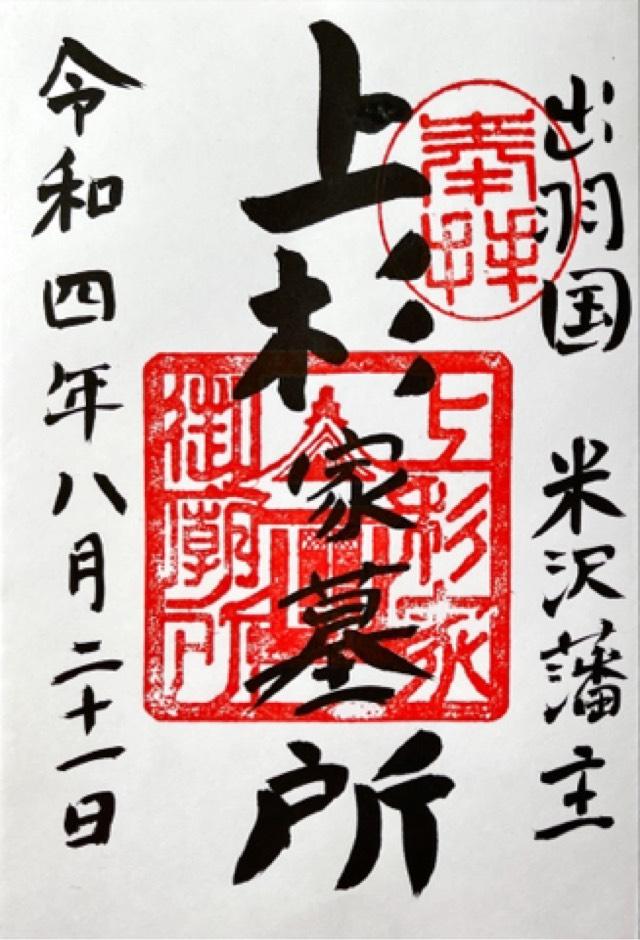 奉拝
出羽国 米沢藩主
上杉家墓所
上杉家
御廟所
令和四年八月二十一日